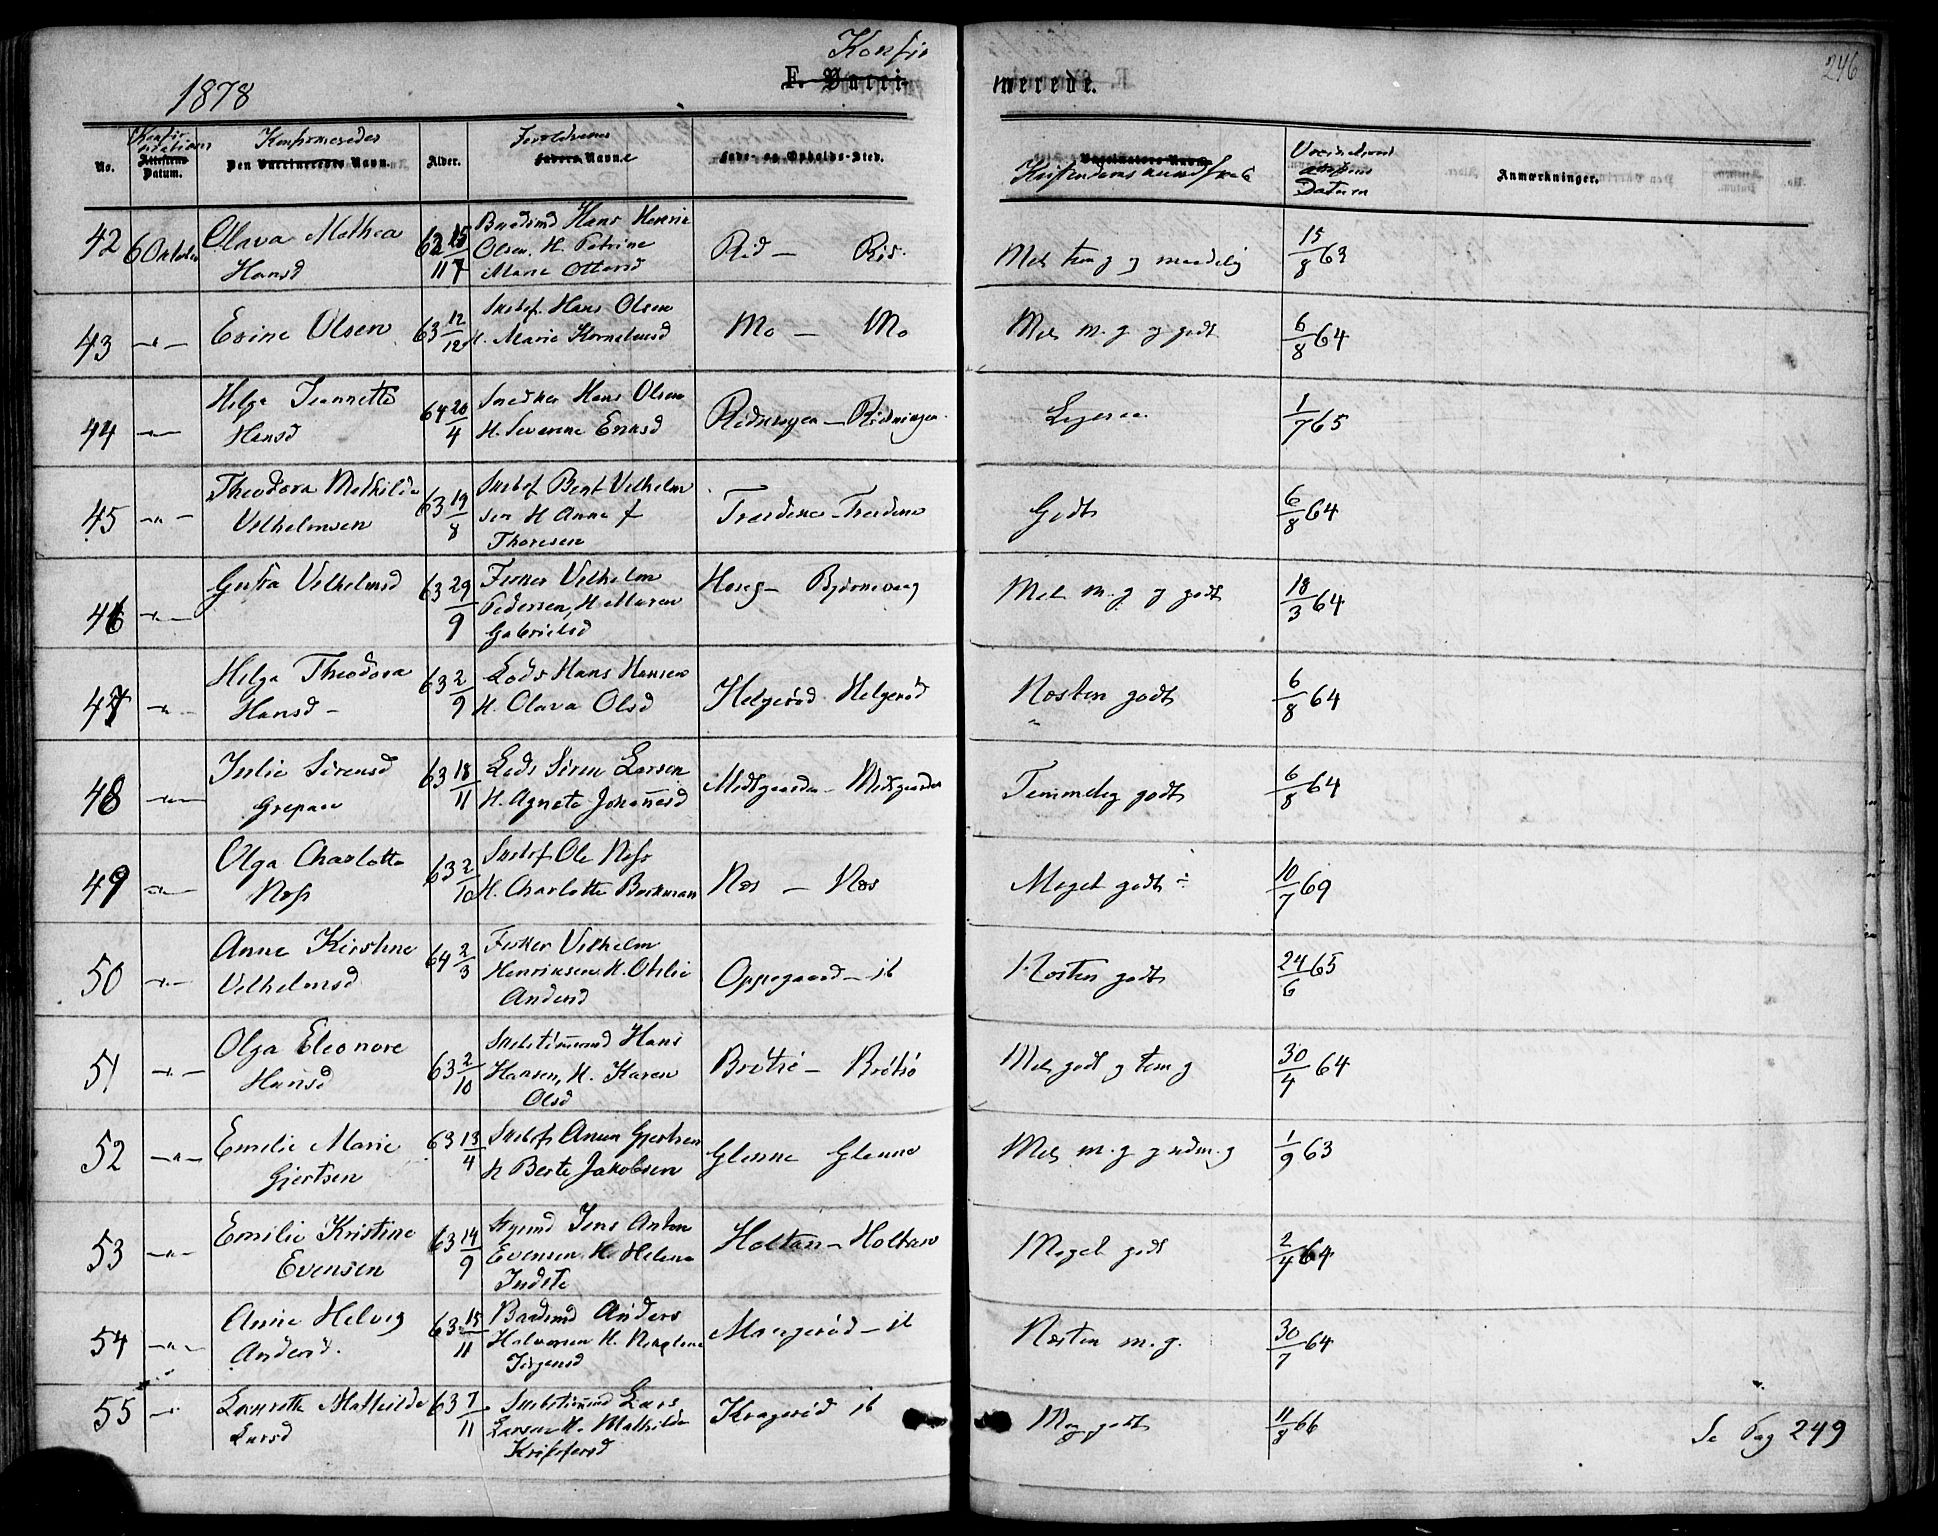 246
1878
Konfir
F. Vacci-
merede.
No.
Konfir
mations
Attestens
Datum.
Konfirmeredes
Den Vaccineredes Navn.
Alder.
Foreldrenes
Faders Navne
Føde- og Opholds-Sted.
Vaccinators Navn
Kristendomskundskab
Vaccinations
attestens
Datum
Anmærkninger.
42 6 Oktober Olava Mathea
Hansd
62 15/11
Hans Henrik
Olsen. H. Petrine
Marie Ottersd
Rød — Rød.
Mel. tem. g. og maadelig
15/8 63
43 -"- Evine Olsen
63 12/12
Skibsf. Hans Olsen
H. Marie Korneliusd
Mo — Mo
Mel. m. g. og godt
6/8 64
44 -"- Helga Jeannette
Hansd
64 20/4
Snedker Hans Olsen
H. Severine
Lignende
1/7 65
45 -"- Theodora Mathilde
Vilhelmsen
63 19/8
Skibsf Bent Vilhelm
sen H Anne f
Thoresen
Godt
6/8 64
46 -"- Vilhelmsd
63 29/9
Fisker Vilhelm
Pedersen, H. Maren
Gabrielsd
Bjørnevaag
Mel. m. g. og godt
18/3 64
47 -"- Helga Theodora
Hansd -
63 2/9
Lods Hans Hansen
H. Olava Olsd
Helgerød - Helgerød
Næsten godt
6/8 64
48 -"- Julie Sørensd
Grepan
63 18/11
Lods Søren Larsen
H. Agnete Johannesd
Midtgaarden - Midtgaarden
Temmelig godt
6/8 64
49 -"- Olga Charlotte
Næss
63 2/10
Skibsf Ole Næss
H. Charlotte Beckman
Næs — Næs
Meget godt ÷
10/7 69
50 -"- Anne Kirstine
Vilhelmsd
64 2/3
Fisker Vilhelm
Henriksen H. Otilie
Andersd
Oppegaard - ib
Næsten godt
24/6 65
51 -"- Olga Eleonore
Hansd
63 2/10
Skibstømmd Hans
Hansen, H. Karen
Olsd
Brøtsø - Brøtsø
Mel. godt og tem g
30/4 64
52 -"- Emilie Marie
Gjertsen
63 13/4
Skibsf Gjertsen
H Berte Jakobsen
Glenne Glenne
Mel. m. g og udm. g
1/9 63
53 -"- Emilie Kristine
Evensen
63 14/9
Styrmd Jens Anton
Evensen H. Helene
Holtan - Holtan
Meget godt
2/4 64
54 -"- Anne Helvig
Andersd.
63 15/11
Anders
Halvorsen H.
Jørgensd
- ib
Næsten m. g.
30/7 64
55 -"- Lauretta Mathilde
Larsd
63 7/11
Skibstømmd Lars
Larsen H. Mathilde
Kristofersd
Kragerød ib
Meg godt
11/8 66
Se Pag 249